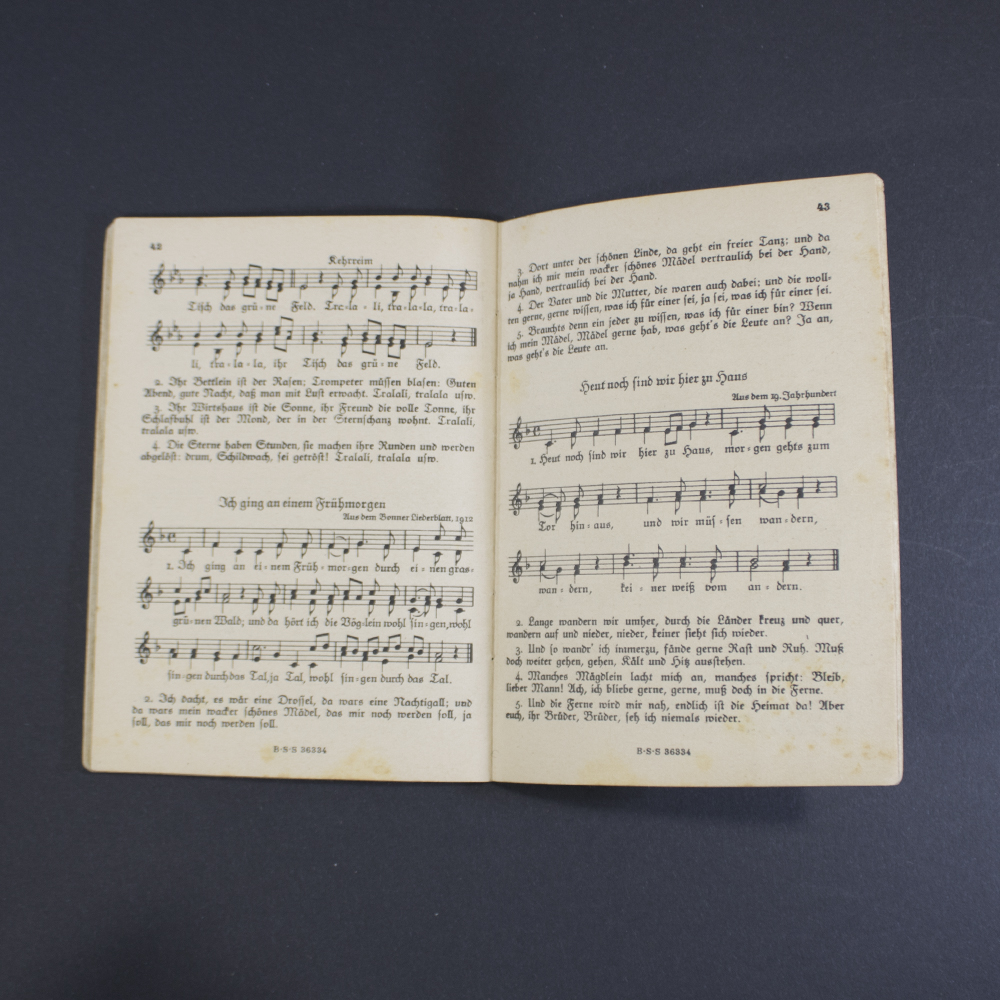 42
Kehrreim
Tisch das grü-ne Feld. Tra-la-li, tra-la-la, tra-la-
li, tra-la-la, ihr Tisch das grü-ne Feld.
2. Ihr Bettlein ist der Rasen; Trompeter müssen blasen: Guten
Abend, gute Nacht, daß man mit Lust erwacht. Tralali, tralala usw.
3. Ihr Wirtshaus ist die Sonne, ihr Freund die volle Tonne, ihr
Schlafbuhl ist der Mond, der in der Sternschanz wohnt. Tralali,
tralala usw.
4. Die Sterne haben Stunden, sie machen ihre Runden und werden
abgelöst: drum, Schildwach, sei getröst! Tralali, tralala usw.
Ich ging an einem Frühmorgen
Aus dem Bonner Liederblatt, 1912
1. Ich ging an ei-nem Früh-mor-gen durch ei-nen gras-
grü-nen Wald; und da hört ich die Vög-lein wohl sin-gen, wohl
sin-gen durch das Tal, ja Tal, wohl sin-gen durch das Tal.
2. Ich dacht, es wär eine Drossel, da wars eine Nachtigall; und
da wars mein wacker schönes Mädel, das mir noch werden soll, ja
soll, das mir noch werden soll.
B·S·S 36334
43
3. Dort unter der schönen Linde, da geht ein freier Tanz; und da
nahm ich mir mein wacker schönes Mädel vertraulich bei der Hand,
ja Hand, vertraulich bei der Hand.
4. Der Vater und die Mutter, die waren auch dabei; und die woll-
ten gerne, gerne wissen, was ich für einer sei, ja sei, was ich für einer sei.
5. Brauchts denn ein jeder zu wissen, was ich für einer bin? Wenn
ich mein Mädel, Mädel gerne hab, was geht's die Leute an? Ja an,
was geht's die Leute an.
Heut noch sind wir hier zu Haus
Aus dem 19. Jahrhundert
1. Heut noch sind wir hier zu Haus, mor-gen gehts zum
Tor hin-aus, und wir müs-sen wan-dern,
wan-dern, kei-ner weiß vom an-dern.
2. Lange wandern wir umher, durch die Länder kreuz und quer,
wandern auf und nieder, nieder, keiner sieht sich wieder.
3. Und so wandr' ich immerzu, fände gerne Rast und Ruh. Muß
doch weiter gehen, gehen, Kält und Hitz ausstehen.
4. Manches Mägdlein lacht mich an, manches spricht: Bleib,
lieber Mann! Ach, ich bliebe gerne, gerne, muß doch in die Ferne.
5. Und die Ferne wird mir nah, endlich ist die Heimat da! Aber
euch, ihr Brüder, Brüder, seh ich niemals wieder.
B·S·S 36334